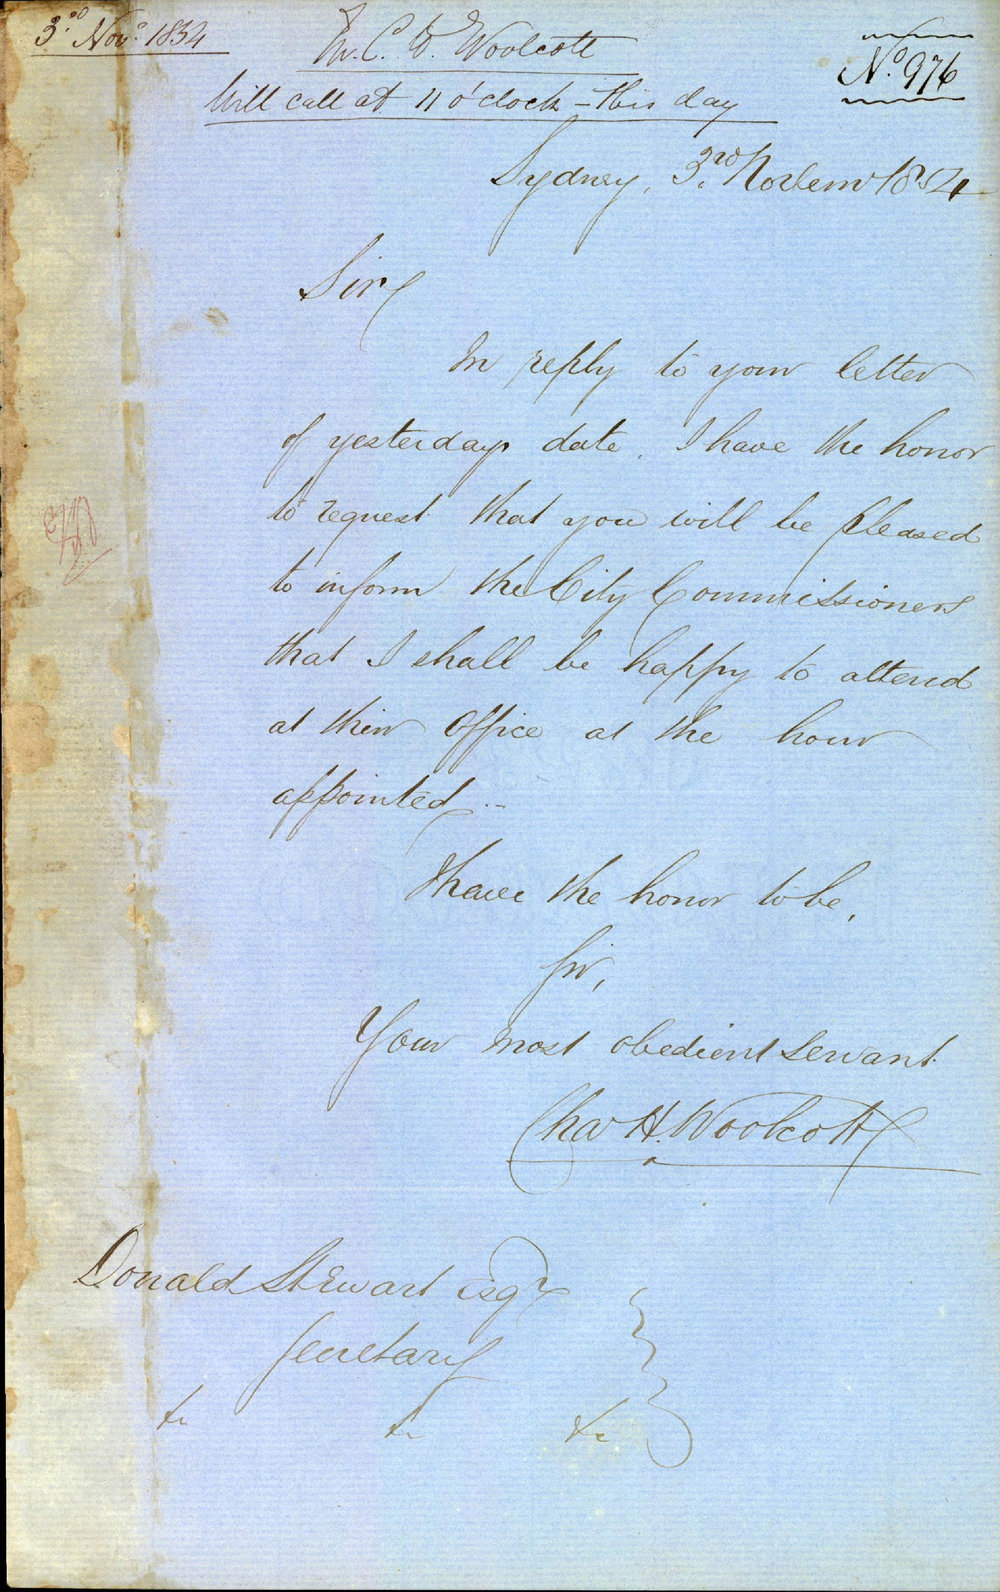 3rd Novr. 1854
Mr. C. H. Woolcott
No. 976
Will call at 11 o'clock - this day
Sydney, 3rd Novemr 1854
Sir
In reply to your letter
of yesterdays date. I have the honor
to request that you will be pleased
to inform the City Commissioners
that I shall be happy to attend
at their Office at the hour
appointed..
I have the honor to be,
Sir,
Your most obedient servant.
Chas H. Woolcott
Donald Stewart Esqr
Secretary
&c &c &c